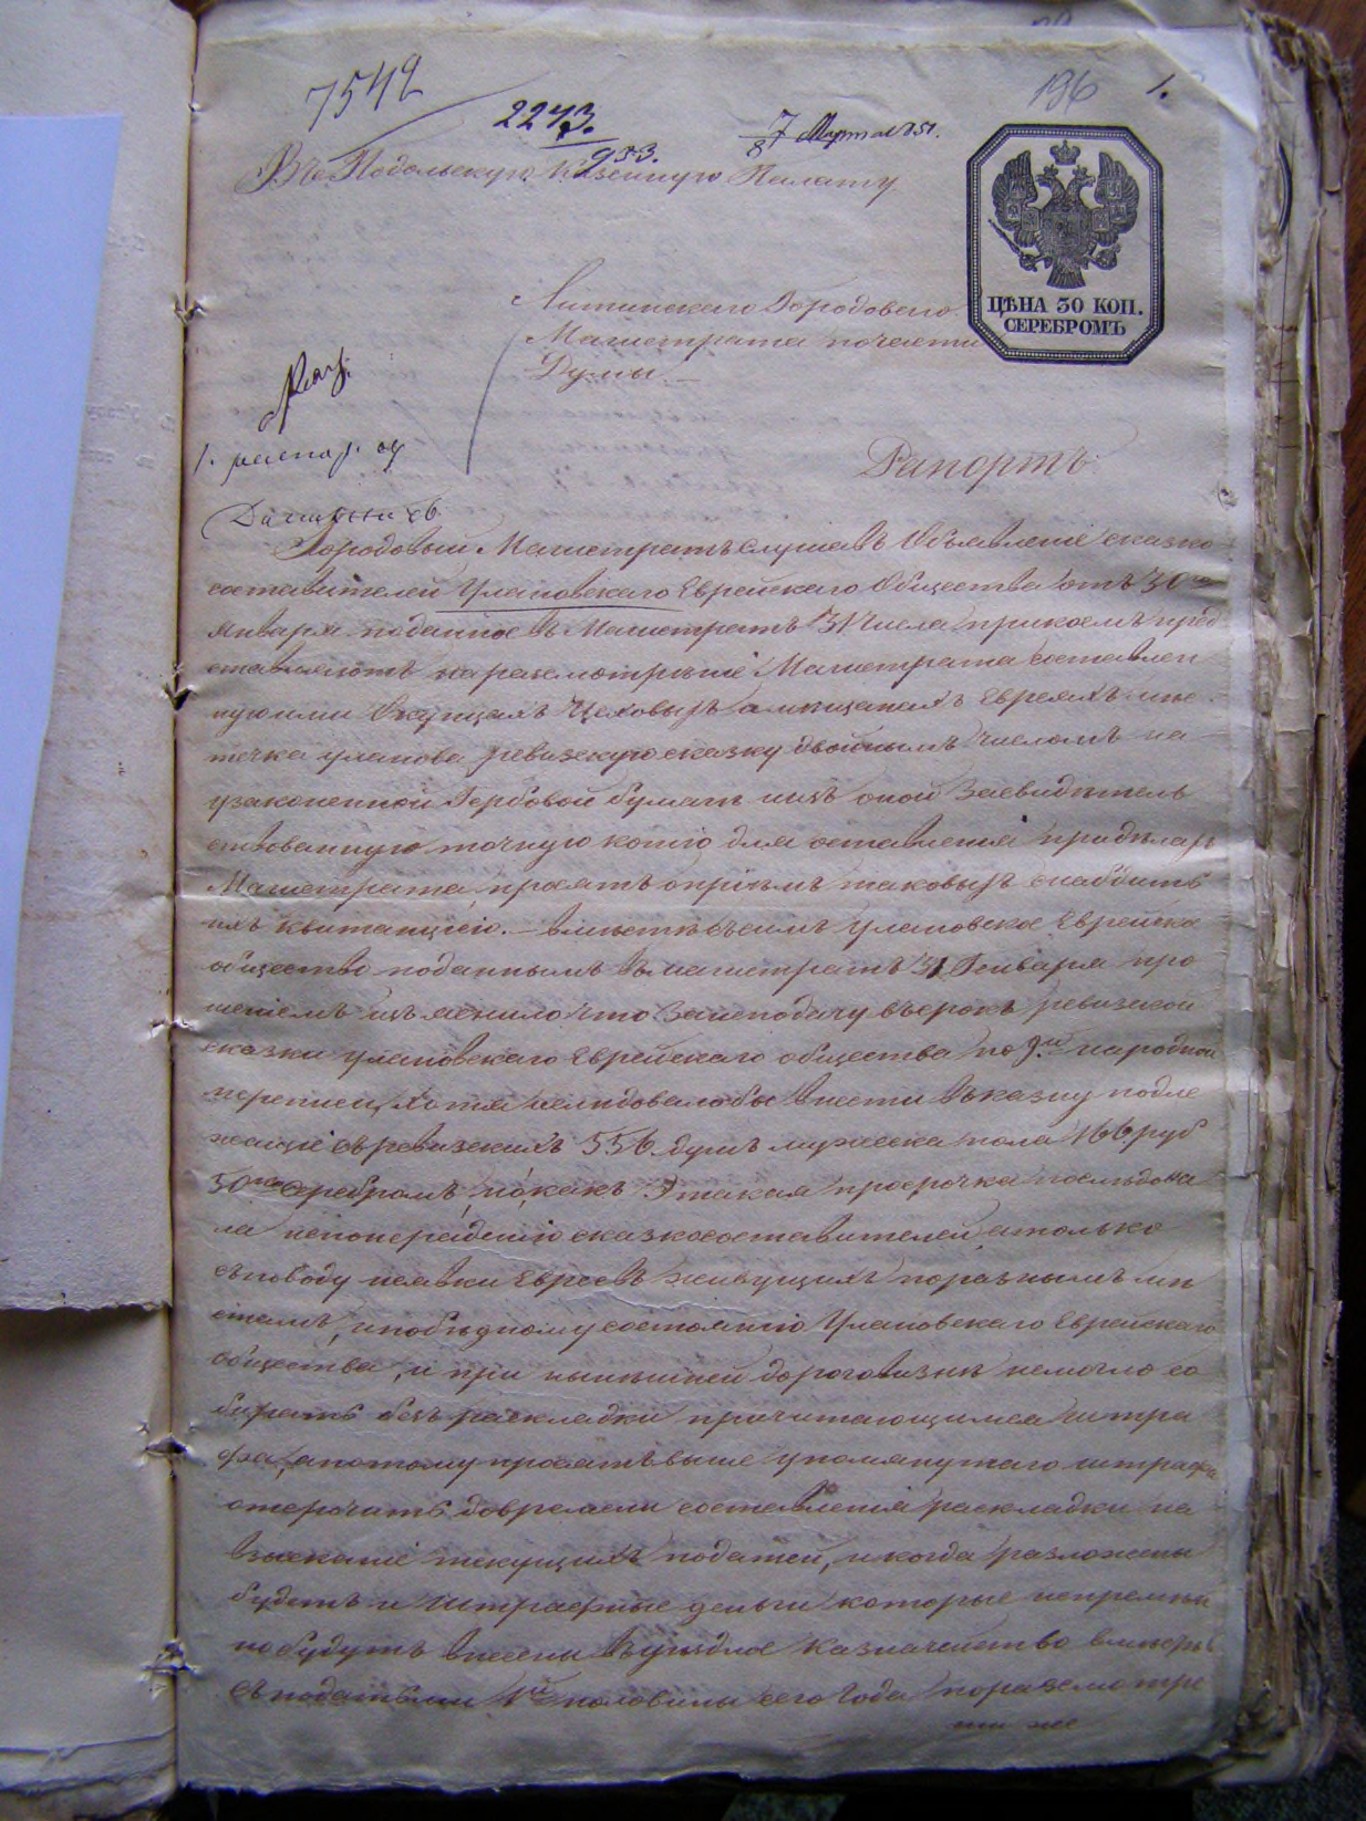 7542
196
1.
2273.
953.
7/8 Марта 1851.
Въ Подольскую Казенную Палату
ЦѢНА 30 КОП.
СЕРЕБРОМЪ
Литинскаго Городоваго
Магистрата почасти
Думы
Рапортъ.
Городовый Магистратъ Слушавъ Объявленіе сказко
составителей Улановскаго Еврейскаго Общества отъ 30го
Января поданное въ Магистратъ 31 числа прикоемъ пред
ставляютъ наразсмотрѣніе Магистрата составлен
ную ими Окупцахъ Цеховыхъ а мещанахъ Евреяхъ мѣс
течка уланова ревизскую сказку двойнымъ числомъ на
узаконенной Гербовой бумагѣ иизъ оной Засвидѣтель
ствованную точную копію для оставленія придѣлахъ
Магистрата просятъ опріемѣ таковыхъ снабдить
ихъ квитанціею. – вмѣстѣ съ симъ Улановское Еврейско
общество поданнымъ въ магистратъ 31 Генваря про
шеніемъ изъяснило что Занеподачу въ срокъ ревизской
сказки улановскаго Еврейскаго общества по 9й народной
переписи, хотя иследовалобы внести въ казну подле
жащіе съ ревизскихъ 556 душъ мужеска пола 166 руб
50 ко серебромъ, но какъ такая просрочка последова
ла непонерадению сказкосоставителей, а только
съ поводу неявки Евреевъ живущихъ поразнымъ мѣ
стамъ, и побѣдному состоянію Улановскаго Еврейскаго
общества, и при нынѣшней дороговизнѣ немогло со
бирать безъ раскладки причитающимся штра
фа, а потому просятъ выше упомянутаго штрафа
отсрочить довремени составленія раскладки на
взысканіе текущихъ податей, и когда разложены
будетъ и штрафные деньги которые непремѣн
но будутъ внесены въ уездное Казначейство вместѣ
съ податьми 1й половины сего Года поразсмотре
ніи же